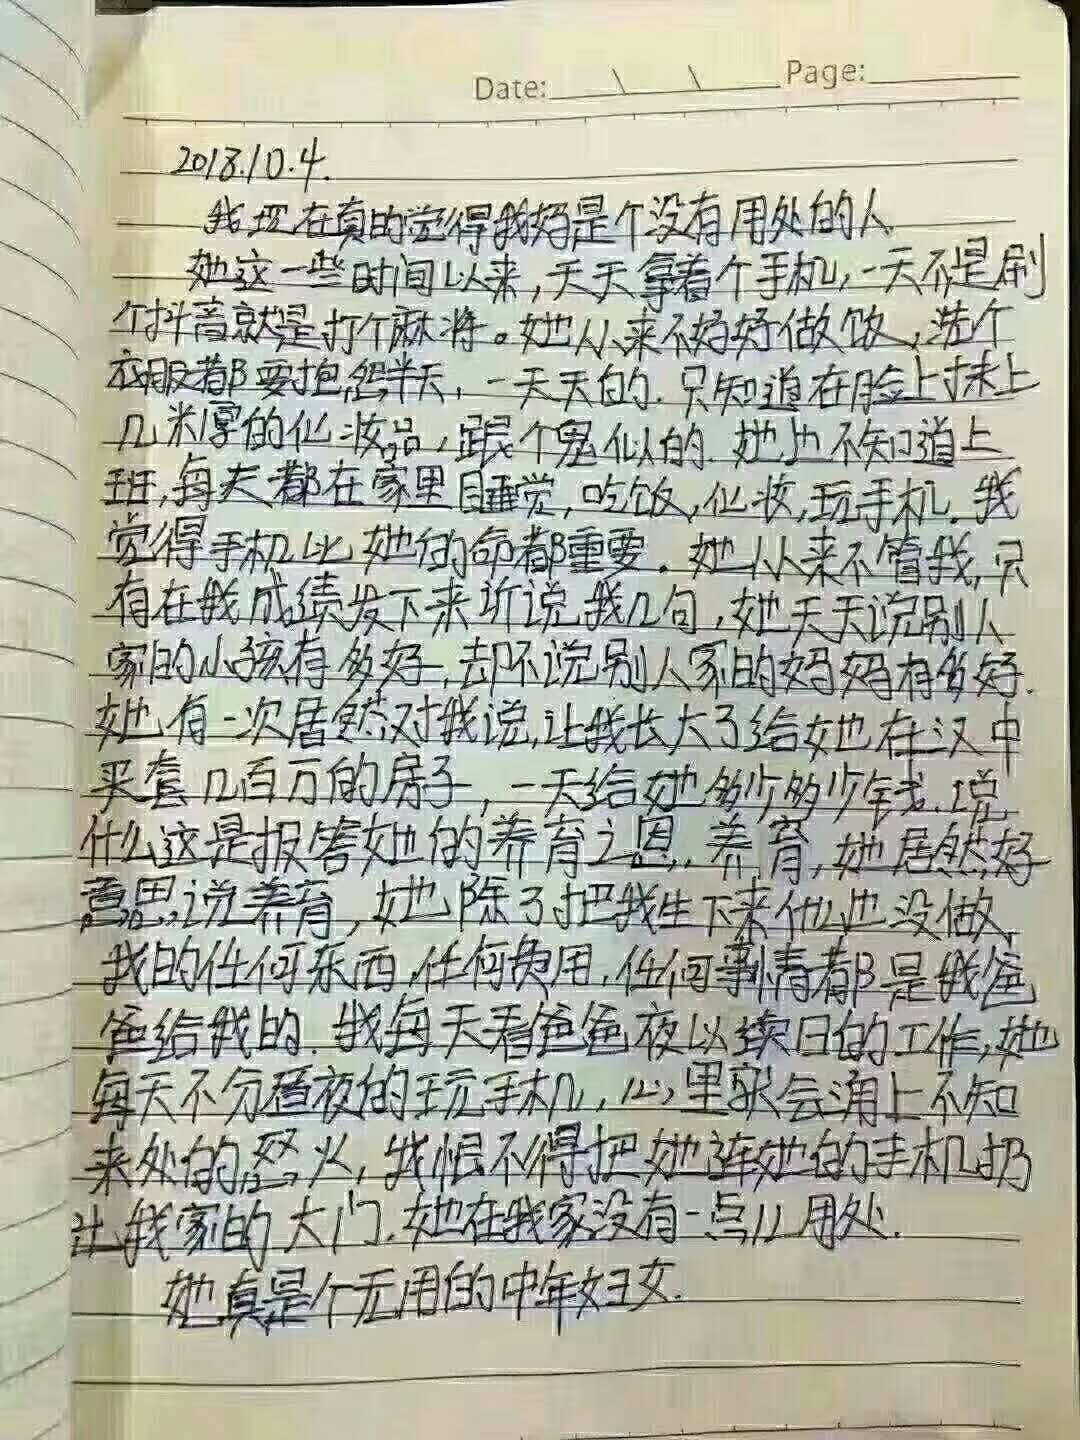 Date: \ \ Page:
2018.10.4.
我现在真的觉得我妈是个没有用处的人
她这一些时间以来,天天拿着个手机,一天不是刷
个抖音就是打个麻将。她从来不好好做饭,洗个
衣服都要抱怨半天,一天天的.只知道在脸上抹上
几米厚的化妆品,跟个鬼似的.她也不知道上
班,每天都在家里睡觉,吃饭,化妆,玩手机.我
觉得手机比她的命都重要.她从来不管我,只
有在我成绩发下来听说我几句,她天天说别人
家的小孩有多好,却不说别人家的妈妈有多好.
她有一次居然对我说,让我长大了给她在汉中
买套几百万的房子,一天给她多少多少钱.说
什么这是报答她的养育之恩.养育,她居然好
意思说养育,她除了把我生下来他也没做
我的任何东西,任何费用,任何事情都是我爸
爸给我的.我每天看爸爸夜以续日的工作,她
每天不分昼夜的玩手机,心里就会涌上不知
来处的怒火,我恨不得把她连她的手机扔
出我家的大门.她在我家没有一点儿用处.
她真是个无用的中年妇女.